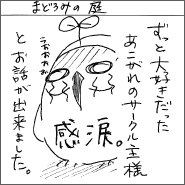 まどろみの庭
ずっと大好きだった
あこがれのサークル主様
うおおおお
感涙。
とお話が出来ました。